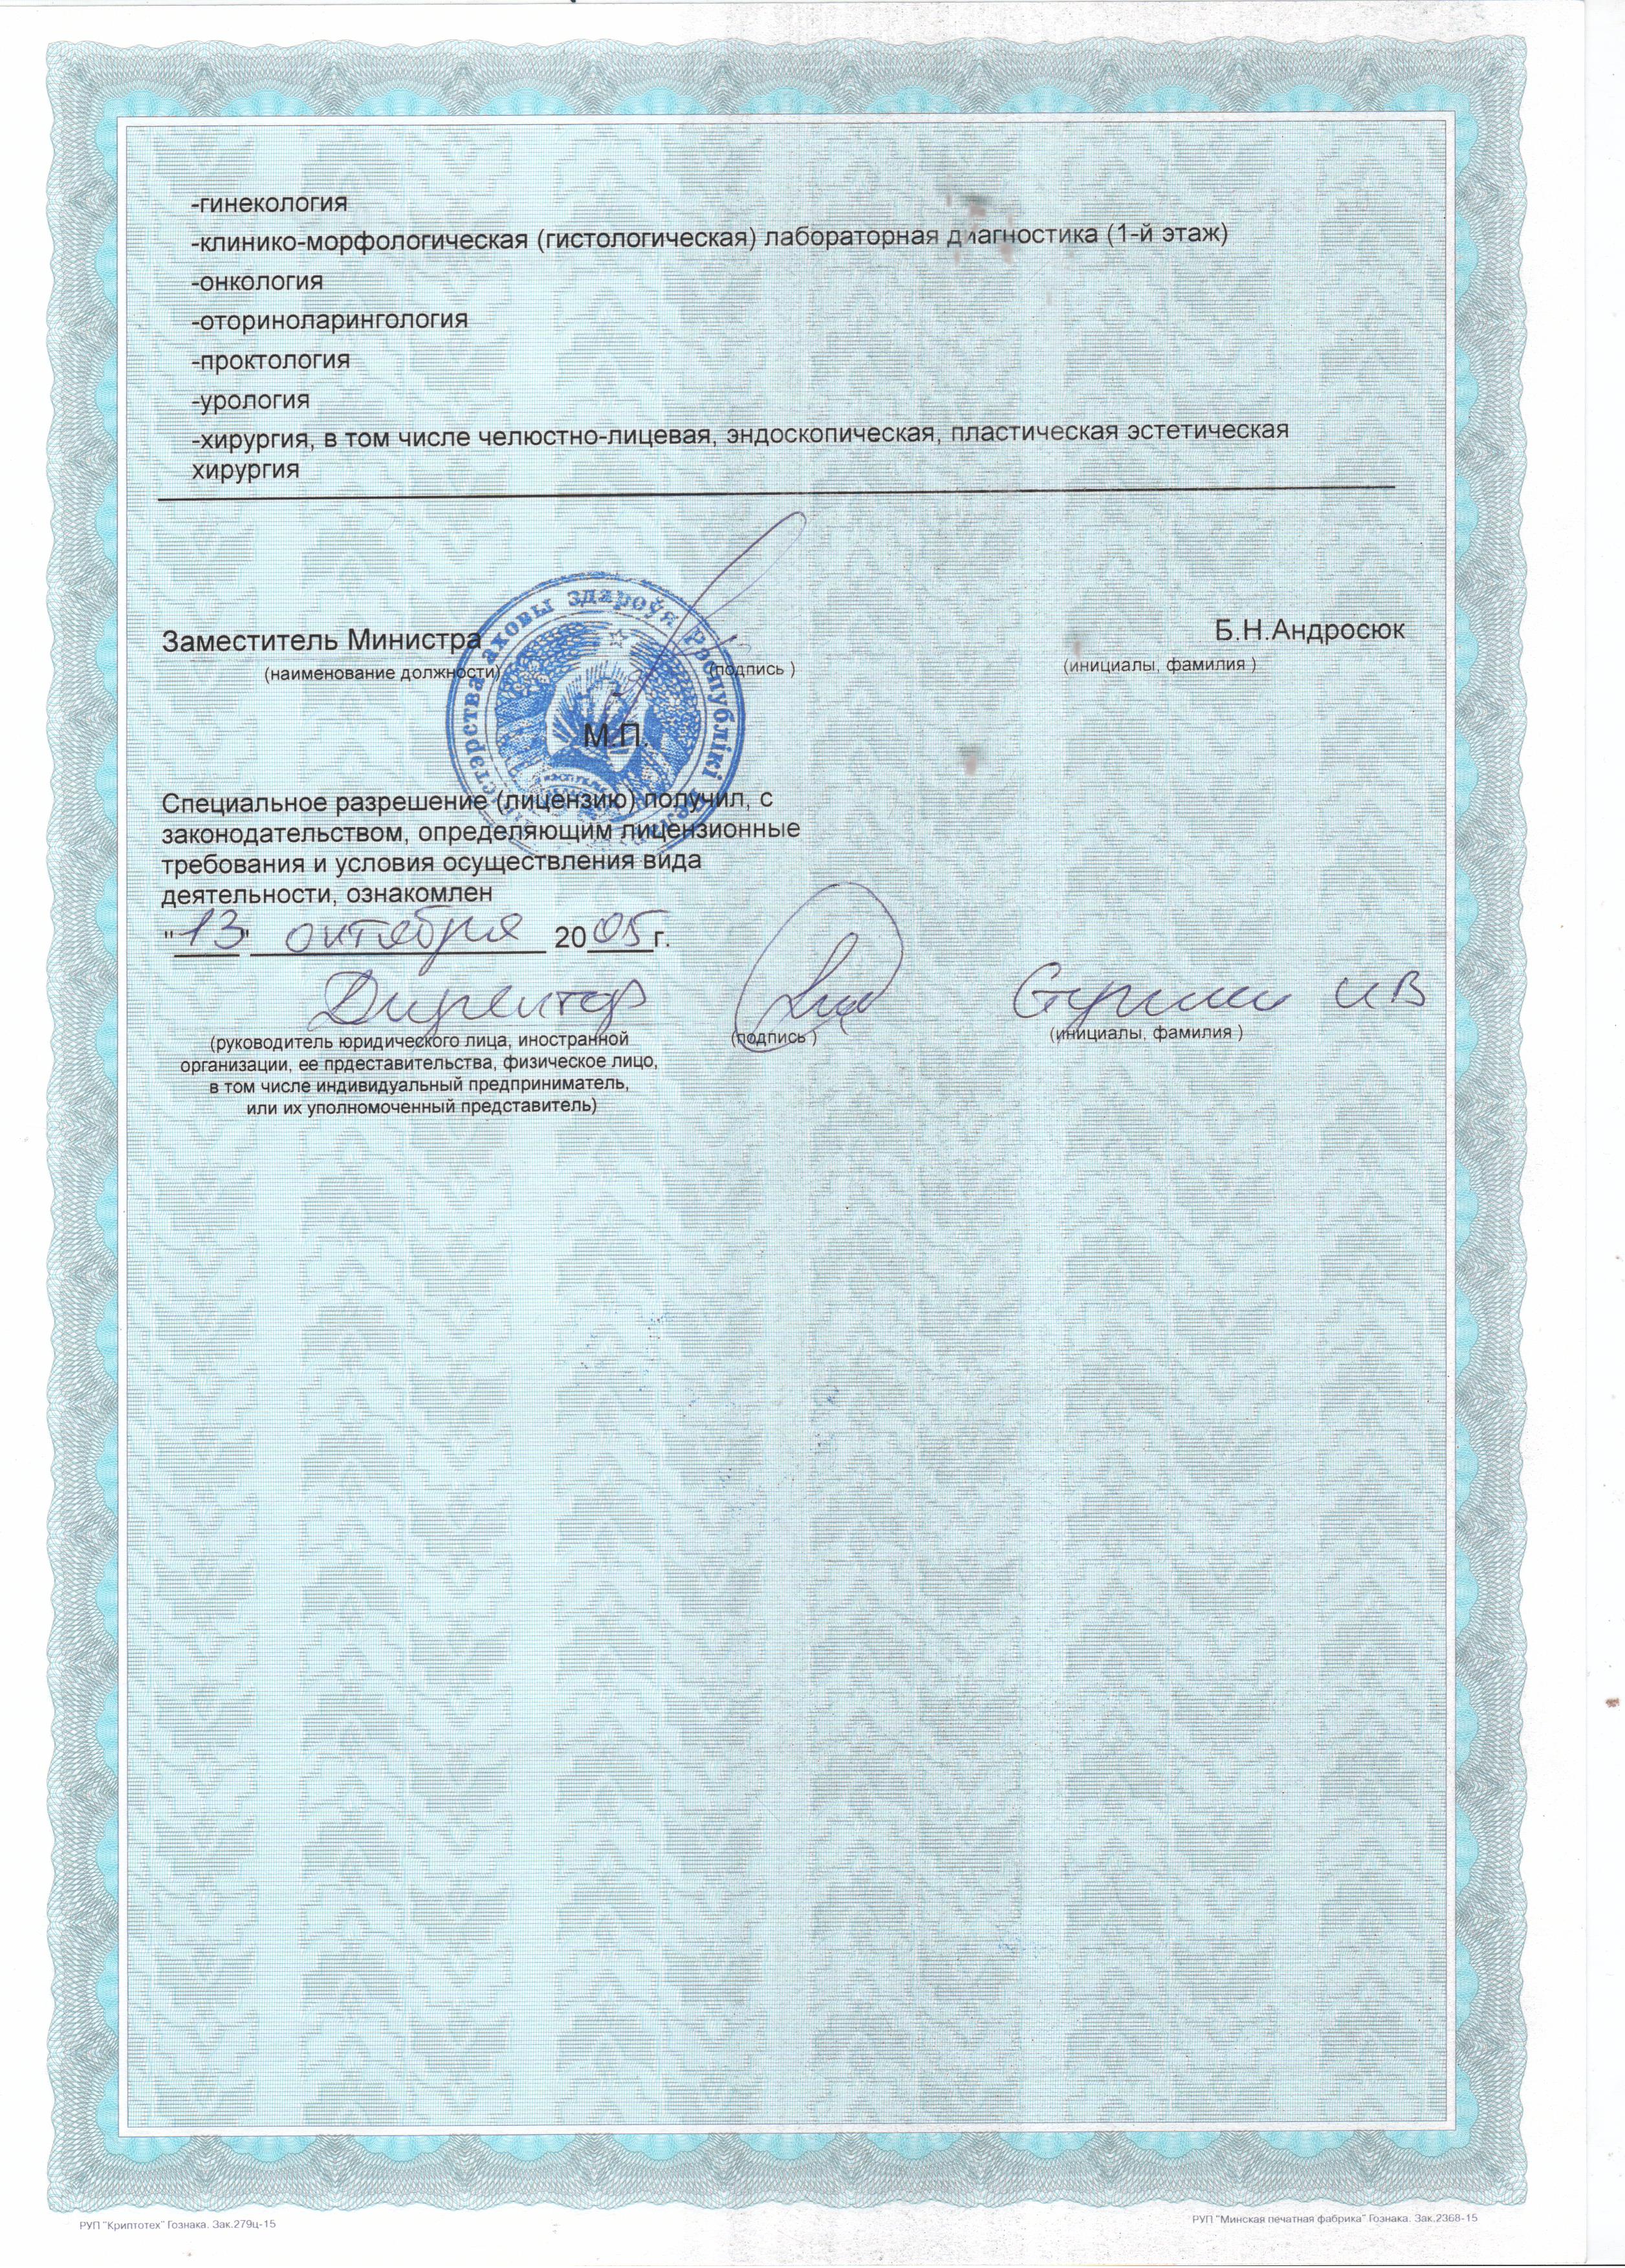 -гинекология
-клинико-морфологическая (гистологическая) лабораторная диагностика (1-й этаж)
-онкология
-оториноларингология
-проктология
-урология
-хирургия, в том числе челюстно-лицевая, эндоскопическая, пластическая эстетическая
хирургия
Заместитель Министра Б.Н.Андросюк
(наименование должности) (подпись ) (инициалы, фамилия )
аховы здароўя Рэспублікі
М.П.
Специальное разрешение (лицензию) получил, с
законодательством, определяющим лицензионные
требования и условия осуществления вида
деятельности, ознакомлен
"13" октября 2005г.
Директор И В
(руководитель юридического лица, иностранной (подпись ) (инициалы, фамилия )
организации, ее прдеставительства, физическое лицо,
в том числе индивидуальный предприниматель,
или их уполномоченный представитель)
РУП "Криптотех" Гознака. Зак.279ц-15 РУП "Минская печатная фабрика" Гознака. Зак.2368-15